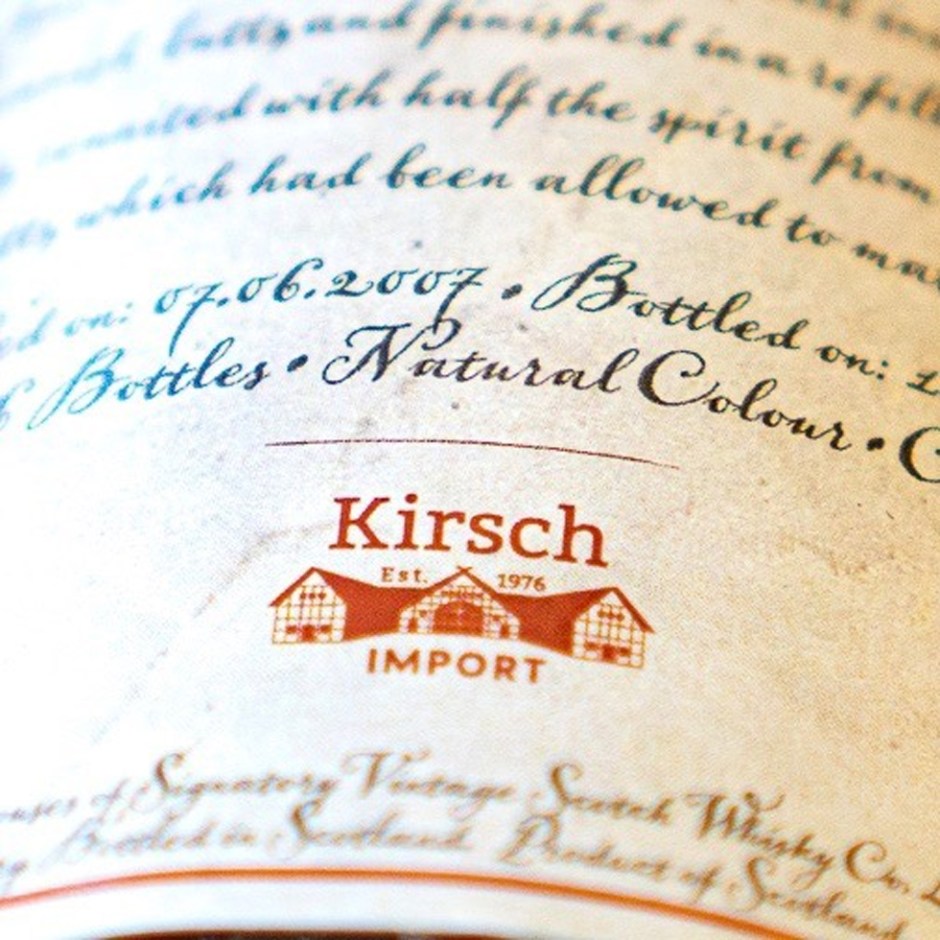 butts and finished in a refill
reunited with half the spirit from
which had been allowed to
on: 07.06.2007 • Bottled on:
Bottles • Natural Colour •
Kirsch
Est. 1976
IMPORT
of Signatory Vintage Scotch Whisky Co.
Bottled in Scotland Product of Scotland